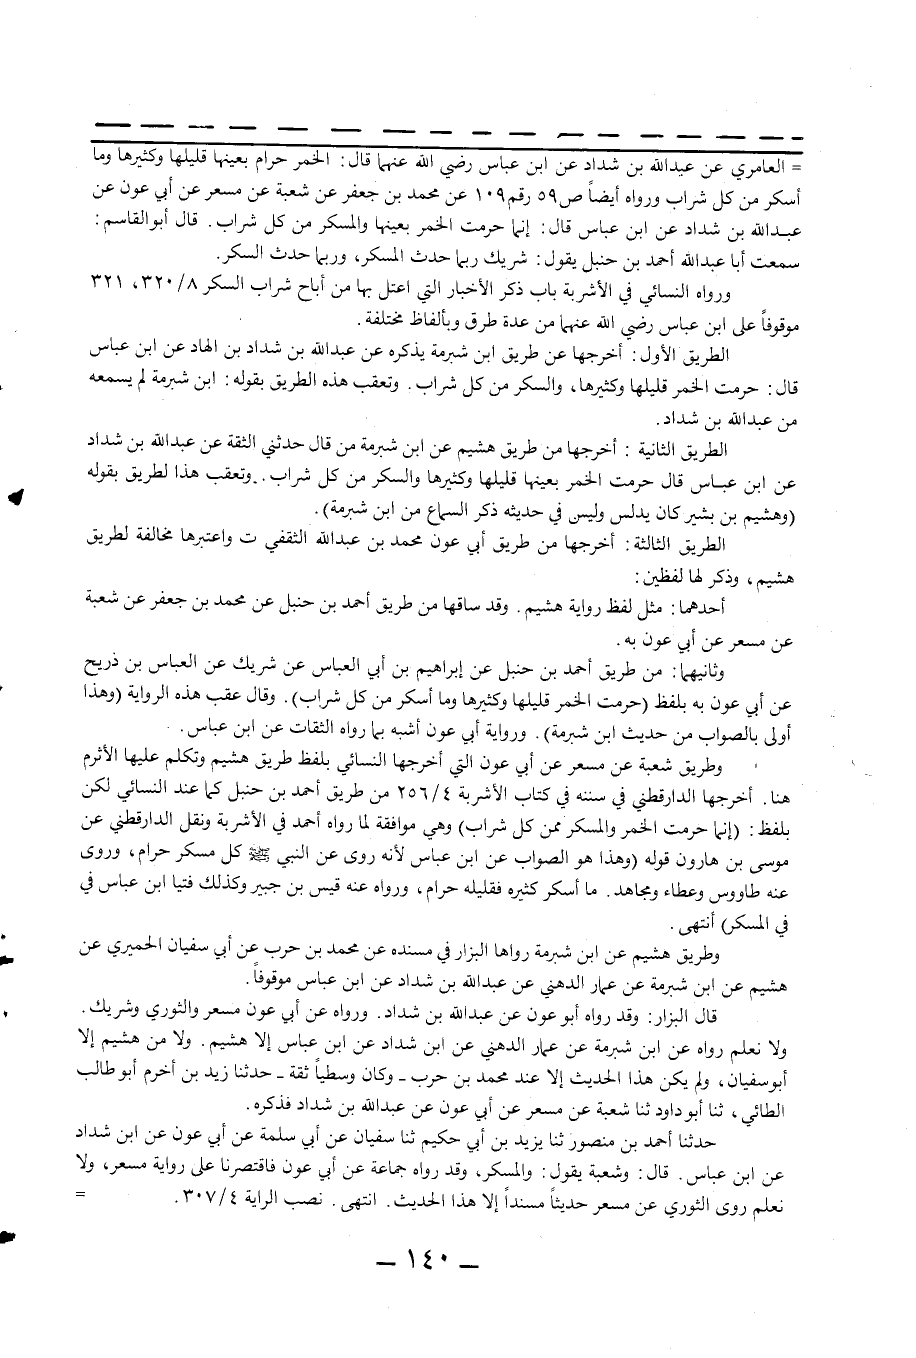 = العامري عن عبدالله بن شداد عن ابن عباس رضي الله عنهما قال: الخمر حرام بعينها قليلها وكثيرها وما
أسكر من كل شراب ورواه أيضاً ص٥٩ رقم ١٠٩ عن محمد بن جعفر عن شعبة عن مسعر عن أبي عون عن
عبدالله بن شداد عن ابن عباس قال: إنما حرمت الخمر بعينها والمسكر من كل شراب. قال أبوالقاسم:
سمعت أبا عبدالله أحمد بن حنبل يقول: شريك ربما حدث المسكر، وربما حدث السكر.
ورواه النسائي في الأشربة باب ذكر الأخبار التي اعتل بها من أباح شراب السكر ٣٢٠/٨، ٣٢١
موقوفاً على ابن عباس رضي الله عنهما من عدة طرق وبألفاظ مختلفة.
الطريق الأول: أخرجها عن طريق ابن شبرمة يذكره عن عبدالله بن شداد بن الهاد عن ابن عباس
قال: حرمت الخمر قليلها وكثيرها، والسكر من كل شراب. وتعقب هذه الطريق بقوله: ابن شبرمة لم يسمعه
من عبدالله بن شداد.
الطريق الثانية : أخرجها من طريق هشيم عن ابن شبرمة من قال حدثني الثقة عن عبدالله بن شداد
عن ابن عباس قال حرمت الخمر بعينها قليلها وكثيرها والسكر من كل شراب.. وتعقب هذا لطريق بقوله
(وهشيم بن بشير كان يدلس وليس في حديثه ذكر السماع من ابن شبرمة).
الطريق الثالثة: أخرجها من طريق أبي عون محمد بن عبدالله الثقفي ت واعتبرها مخالفة لطريق
هشيم، وذكر لها لفظين:
أحدهما: مثل لفظ رواية هشيم. وقد ساقها من طريق أحمد بن حنبل عن محمد بن جعفر عن شعبة
عن مسعر عن أبي عون به.
وثانيهما: من طريق أحمد بن حنبل عن إبراهيم بن أبي العباس عن شريك عن العباس بن ذريح
عن أبي عون به بلفظ (حرمت الخمر قليلها وكثيرها وما أسكر من كل شراب). وقال عقب هذه الرواية (وهذا
أولى بالصواب من حديث ابن شبرمة). ورواية أبي عون أشبه بما رواه الثقات عن ابن عباس.
وطريق شعبة عن مسعر عن أبي عون التي أخرجها النسائي بلفظ طريق هشيم وتكلم عليها الأثرم
هنا. أخرجها الدارقطني في سننه في كتاب الأشربة ٢٥٦/٤ من طريق أحمد بن حنبل كما عند النسائي لكن
بلفظ: (إنما حرمت الخمر والمسكر ممن كل شراب) وهي موافقة لما رواه أحمد في الأشربة ونقل الدارقطني عن
موسى بن هارون قوله (وهذا هو الصواب عن ابن عباس لأنه روى عن النبي ﷺ كل مسكر حرام، وروى
عنه طاووس وعطاء ومجاهد. ما أسكر كثيره فقليله حرام، ورواه عنه قيس بن جبير وكذلك فتيا ابن عباس في
في المسكر) أنتهى.
وطريق هشيم عن ابن شبرمة رواها البزار في مسنده عن محمد بن حرب عن أبي سفيان الحميري عن
هشيم عن ابن شبرمة عن عمار الدهني عن عبدالله بن شداد عن ابن عباس موقوفاً.
قال البزار: وقد رواه أبو عون عن عبدالله بن شداد. ورواه عن أبي عون مسعر والثوري وشريك.
ولا نعلم رواه عن ابن شبرمة عن عمار الدهني عن ابن شداد عن ابن عباس إلا هشيم. ولا من هشيم إلا
أبوسفيان، ولم يكن هذا الحديث إلا عند محمد بن حرب ـ وكان وسطياً ثقة ـ حدثنا زيد بن أخرم أبو طالب
الطائي، ثنا أبو داود ثنا شعبة عن مسعر عن أبي عون عن عبدالله بن شداد فذكره.
حدثنا أحمد بن منصور ثنا يزيد بن أبي حكيم ثنا سفيان عن أبي سلمة عن أبي عون عن ابن شداد
عن ابن عباس. قال: وشعبة يقول: والمسكر، وقد رواه جماعة عن أبي عون فاقتصرنا على رواية مسعر، ولا
نعلم روى الثوري عن مسعر حديثاً مسنداً إلا هذا الحديث. انتهى. نصب الراية ٣٠٧/٤. =
ـ ١٤٠ ـ